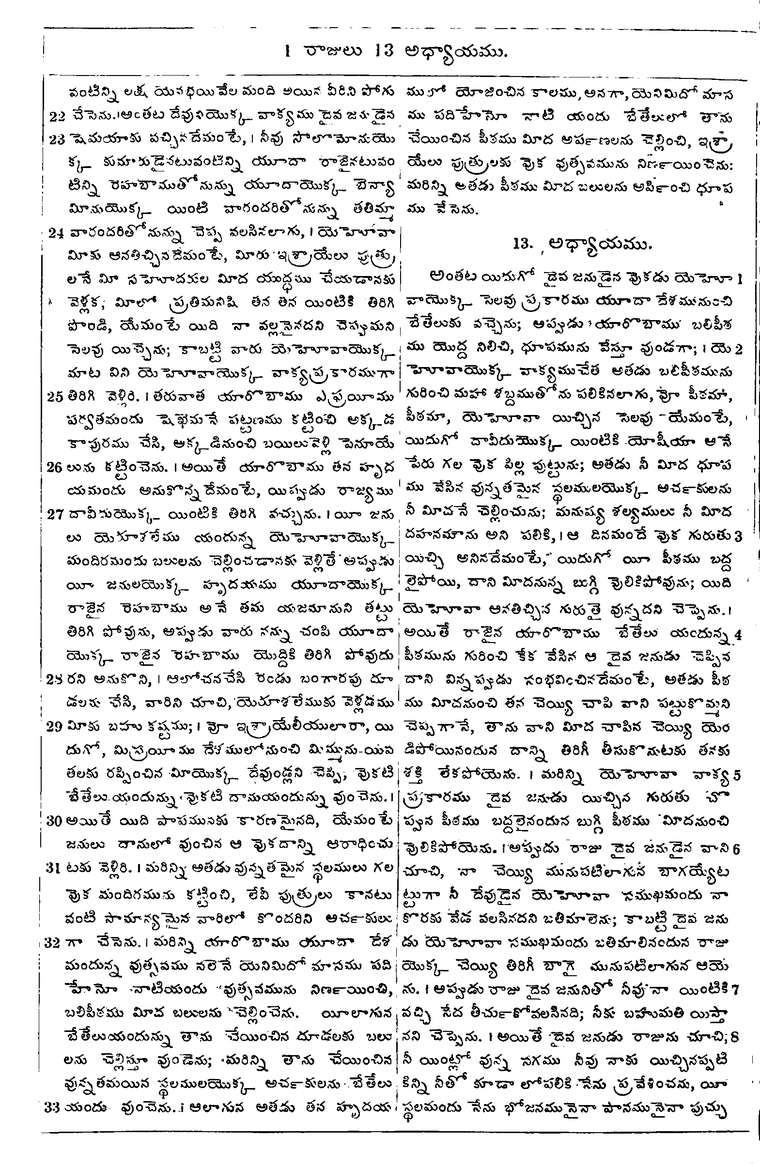 1 రాజులు 13 అధ్యాయము.
వంటిన్ని లక్ష యెనభైయివేల మంది అయిన వీరిని పోగు
22 చేసెను. । అంతట దేవునియొక్క వాక్యము దైవ జనుడైన
23 షెమయాకు వచ్చినదేమంటే, । నీవు సొలొమోనుయొ
క్క కుమారుడైనటువంటిన్ని యూదా రాజైనటువం
టిన్ని రెహబాముతోనున్ను యూదాయొక్క బెన్యా
మీనుయొక్క యింటి వారందరితోనున్ను తతిమ్మా
24 వారందరితోనున్ను చెప్ప వలసినలాగు, । యెహోవా
మీకు ఆనతిచ్చినదేమంటే, మీరు ఇశ్రాయేలు పుత్రు
లనే మీ సహోదరుల మీద యుద్ధము చేయడానకు
వెళ్లక, మీలో ప్రతిమనిషి తన తన యింటికి తిరిగి
పొండి, యేమంటే యిది నా వల్లనైనదని చెప్పుమని
సెలవు యిచ్చెను; కాబట్టి వారు యెహోవాయొక్క
మాట విని యెహోవాయొక్క వాక్యప్రకారముగా
25 తిరిగి వెళ్లిరి. । తరువాత యారొబాము ఎఫ్రయీము
పర్వతమందు షెఖెమనే పట్టణము కట్టించి అక్కడ
కాపురము చేసి, అక్కడినుంచి బయిలువెళ్లి పెనూయే
26 లును కట్టించెను. । అయితే యారొబాము తన హృద
యమందు అనుకొన్నదేమంటే, యిప్పుడు రాజ్యము
27 దావీదుయొక్క యింటికి తిరిగి వచ్చును. । యీ జను
లు యెరూశలేము యందున్న యెహోవాయొక్క
మందిరమందు బలులను చెల్లించడానకు వెళ్లితే అప్పుడు
యీ జనులయొక్క హృదయము యూదాయొక్క
రాజైన రెహబాము అనే తమ యజమానుని తట్టు
తిరిగి పోవును, అప్పుడు వారు నన్ను చంపి యూదా
యొక్క రాజైన రెహబాము యొద్దికి తిరిగి పోవుదు
28 రని అనుకొని, । ఆలోచనచేసి రెండు బంగారపు దూ
డలను చేసి, వారిని చూచి, యెరూశలేముకు వెళ్లడము
29 మీకు బహు కష్టము; । వో ఇశ్రాయేలీయులారా, యి
దుగో, మిస్రయీము దేశములోనుంచి మిమ్మును యివ
తలకు రప్పించిన మీయొక్క దేవుండ్లని చెప్పి, వొకటి
బేతేలుయందున్ను వొకటి దానుయందున్ను వుంచెను. ।
30 అయితే యిది పాపమునకు కారణమైనది, యేమంటే
జనులు దానులో వుంచిన ఆ వొకదాన్ని ఆరాధించు
31 టకు వెళ్లిరి. । మరిన్ని అతడు వున్నతమైన స్థలములు గల
వొక మందిరమును కట్టించి, లేవీ పుత్రులు కానటు
వంటి సామాన్యమైన వారిలో కొందరిని అర్చకులు
32 గా చేసెను. । మరిన్ని యారొబాము యూదా దేశ
మందున్న వుత్సవము వలెనే యెనిమిదో మాసము పది
హేనో నాటియందు వుత్సవమును నిర్ణయించి,
బలిపీఠము మీద బలులను చెల్లించెను. యీలాగున
బేతేలుయందున్ను తాను చేయించిన దూడలకు బలు
లను చెల్లిస్తూ వుండెను; మరిన్ని తాను చేయించిన
వున్నతమయిన స్థలములయొక్క అర్చకులను బేతేలు
33 యందు వుంచెను. । ఆలాగున అతడు తన హృదయ
ములో యోజించిన కాలము, అనగా, యెనిమిదో మాస
ము పదిహేనో నాటి యందు బేతేలులో తాను
చేయించిన పీఠము మీద అర్పణలను చెల్లించి, ఇశ్రా
యేలు పుత్రులకు వొక వుత్సవమును నిర్ణయించెను:
మరిన్ని అతడు పీఠము మీద బలులను అర్పించి ధూప
ము వేసెను.
13. అధ్యాయము.
అంతట యిదుగో దైవ జనుడైన వొకడు యెహో 1
వాయొక్క సెలవు ప్రకారము యూదా దేశమునుంచి
బేతేలుకు వచ్చెను; అప్పుడు యారొబాము బలిపీఠ
ము యొద్ద నిలిచి, ధూపమును వేస్తూ వుండగా; । యె 2
హోవాయొక్క వాక్యముచేత అతడు బలిపీఠమును
గురించి మహా శబ్దముతోను పలికినలాగు, వో పీఠమా,
పీఠమా, యెహోవా యిచ్చిన సెలవు యేమంటే,
యిదుగో దావీదుయొక్క యింటికి యోషీయా అనే
పేరు గల వొక పిల్ల పుట్టును; అతడు నీ మీద ధూప
ము వేసిన వున్నతమైన స్థలములయొక్క అర్చకులను
నీ మీదనే చెల్లించును; మనుష్య శల్యములు నీ మీద
దహనమౌను అని పలికి, । ఆ దినమందే వొక గురుతు 3
యిచ్చి అనినదేమంటే, యిదుగో యీ పీఠము బద్ద
లైపోయి, దాని మీదనున్న బుగ్గి వొలికిపోవును; యిది
యెహోవా ఆనతిచ్చిన గురుతై వున్నదని చెప్పెను. ।
అయితే రాజైన యారొబాము బేతేలు యందున్న 4
పీఠమును గురించి కేక వేసిన ఆ దైవ జనుడు చెప్పిన
దాని విన్నప్పుడు సంభవించినదేమంటే, అతడు పీఠ
ము మీదనుంచి తన చెయ్యి చాపి వాని పట్టుకొమ్మని
చెప్పగానే, తాను వాని మీద చాపిన చెయ్యి యెం
డిపోయినందున దాన్ని తిరిగీ తీసుకొనుటకు తనకు
శక్తి లేకపోయెను. । మరిన్ని యెహోవా వాక్య 5
ప్రకారము దైవ జనుడు యిచ్చిన గురుతు చొ
ప్పున పీఠము బద్దలైనందున బుగ్గి పీఠము మీదనుంచి
వొలికిపోయెను. । అప్పుడు రాజు దైవ జనుడైన వాని 6
చూచి, నా చెయ్యి మునుపటిలాగున బాగయ్యేట
ట్టుగా నీ దేవుడైన యెహోవా సముఖమందు నా
కొరకు వేడ వలసినదని బతిమాలెను; కాబట్టి దైవ జను
డు యెహోవా సముఖమందు బతిమాలినందున రాజు
యొక్క చెయ్యి తిరిగీ బాగై మునుపటిలాగున ఆయె
ను. । అప్పుడు రాజు దైవ జనునితో నీవు నా యింటికి 7
వచ్చి సేద తీర్చుకోవలసినది; నీకు బహుమతి యిస్తా
నని చెప్పెను. । అయితే దైవ జనుడు రాజును చూచి; 8
నీ యింట్లో వున్న సగము నీవు నాకు యిచ్చినప్పటి
కిన్ని నీతో కూడా లోపలికి నేను ప్రవేశించను, యీ
స్థలమందు నేను భోజనమునైనా పానమునైనా పుచ్చు